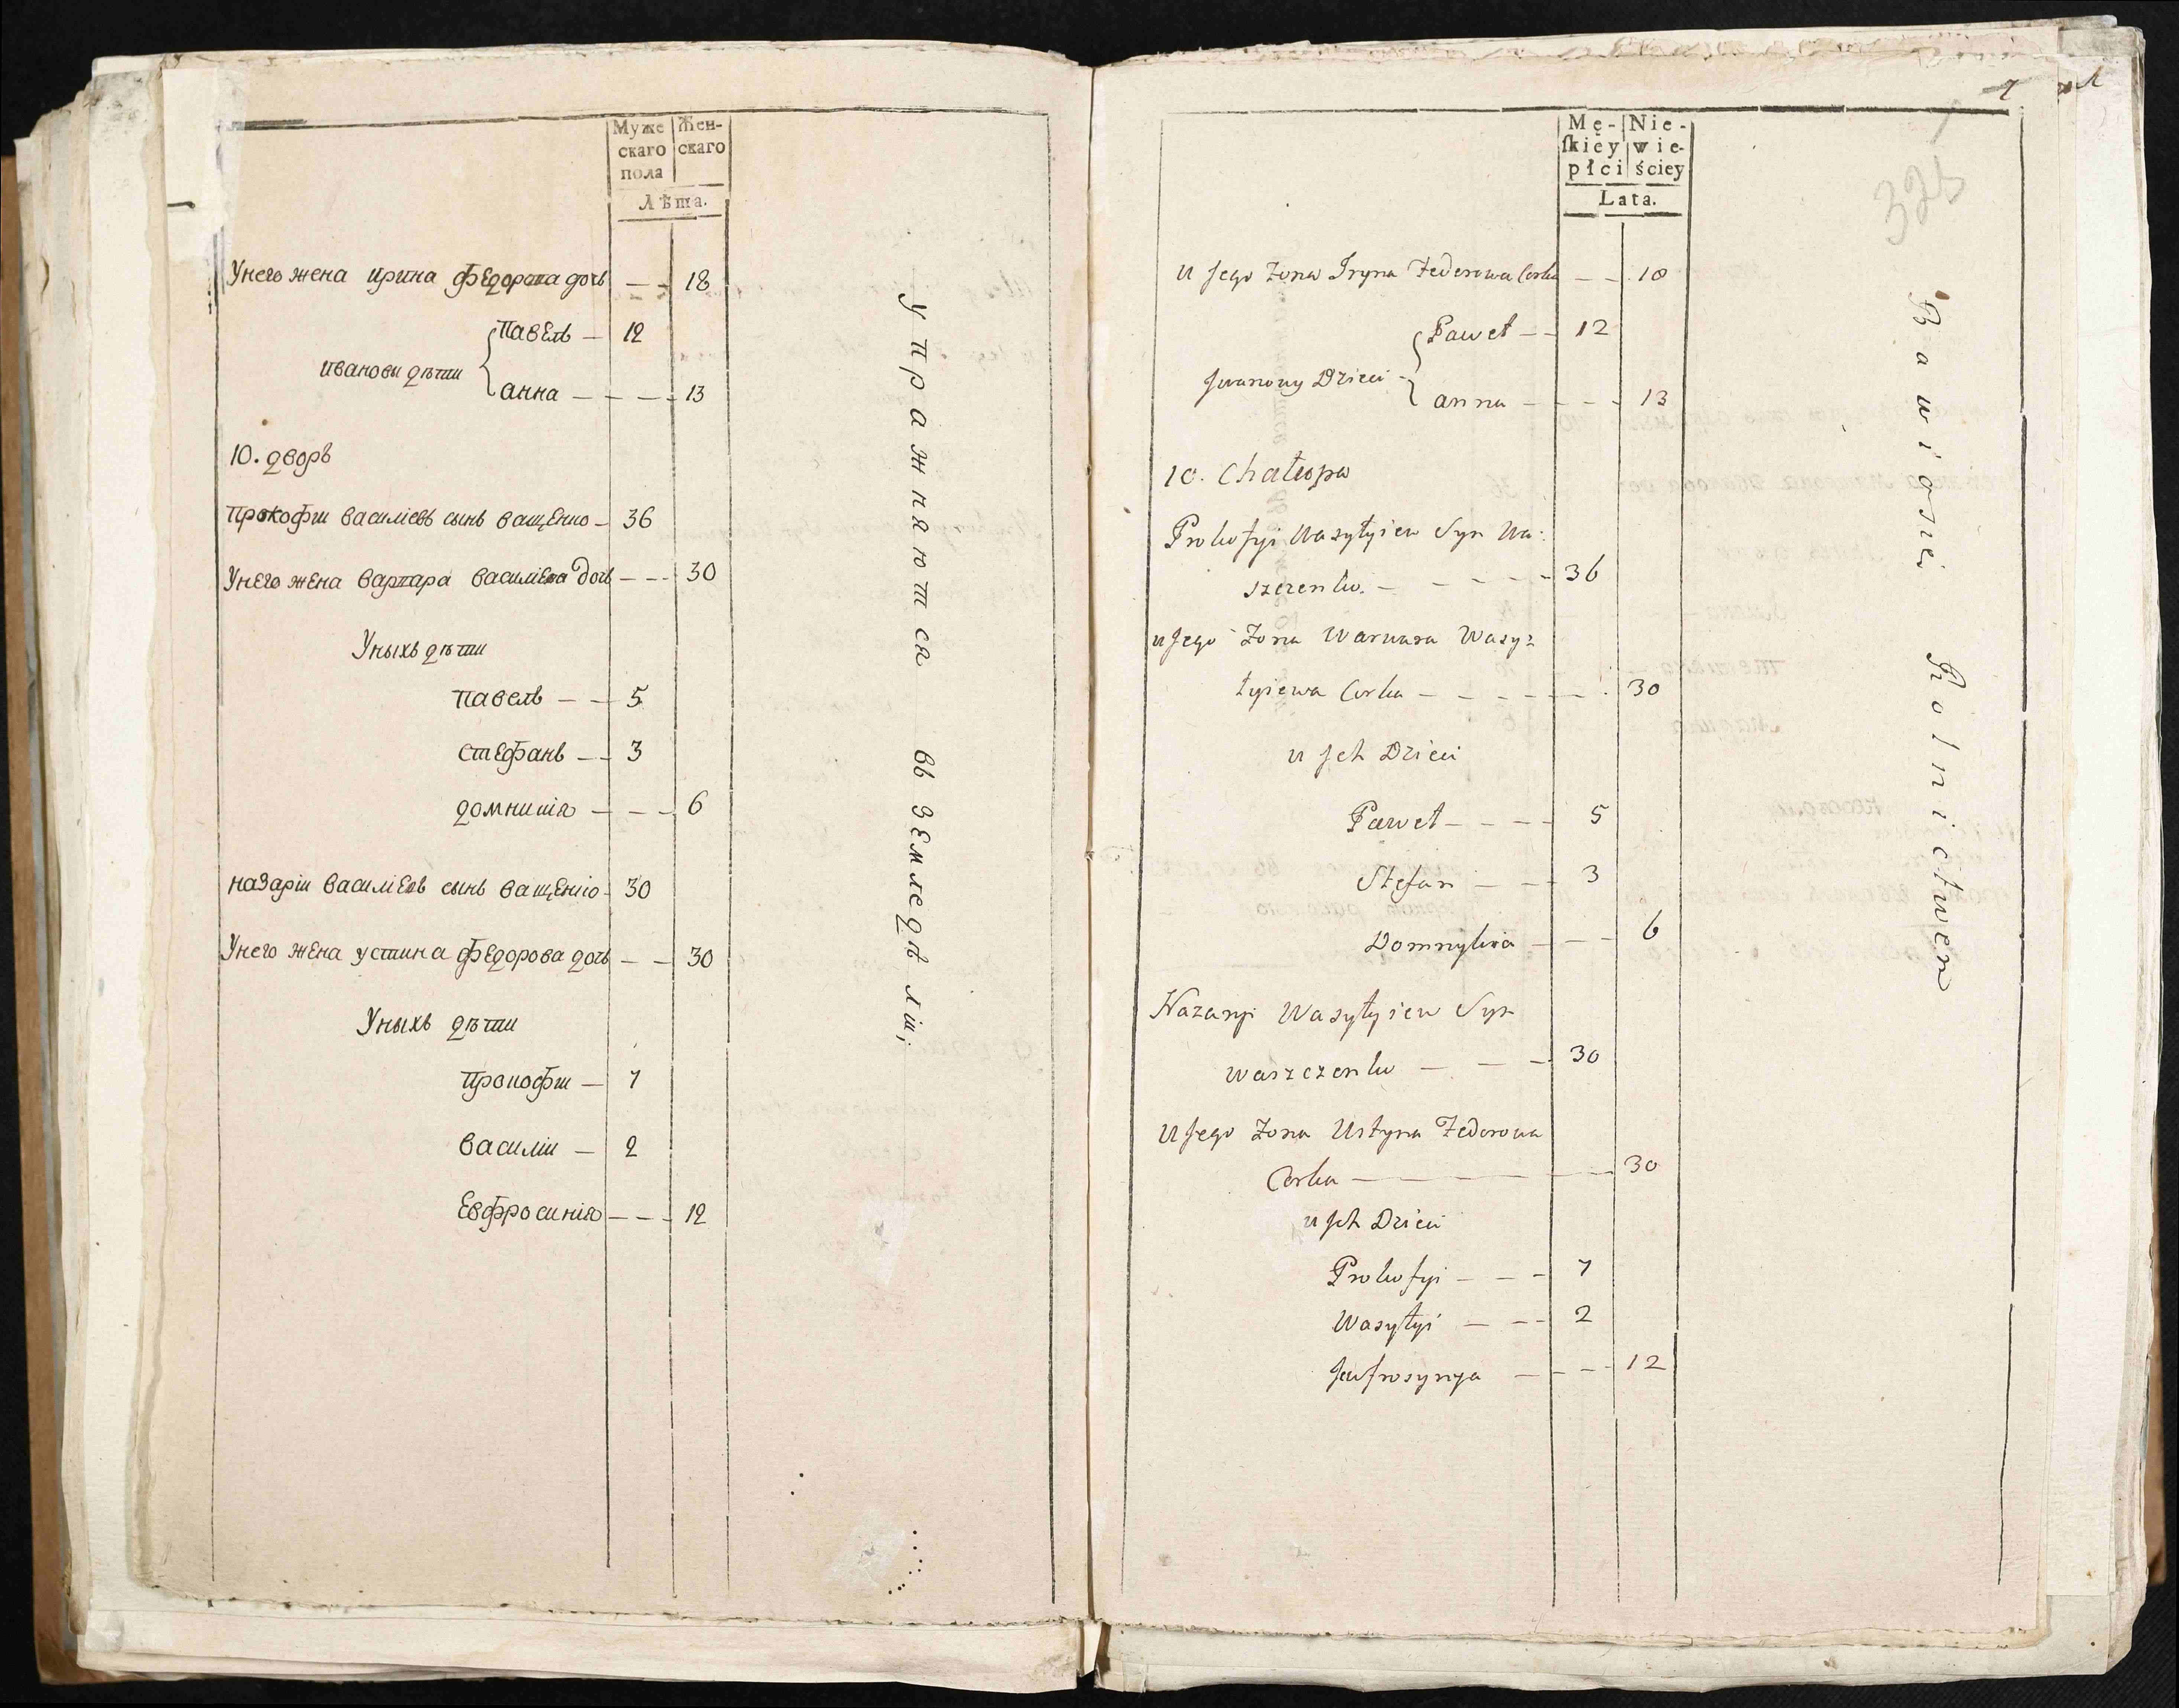 Муже скаго пола
Жен- скаго
Лѣта.
У него жена ирина федорова дочь — — 18
павелъ — 12
ивановы дѣти
анна — — — 13
10. дворъ
прокофіи василіевъ сынъ ващенко — 36
У него жена варвара василіева дочь — — 30
У ныхъ дѣти
павелъ — — 5
стефанъ — — 3
домникія — — — 6
назаріи василіевъ сынъ ващенко — 30
У него жена устина федорова дочь — — 30
У ныхъ дѣти
прокофіи — 7
василіи — 2
Евфросинія — — — 12
упражняются въ земледѣліи;
7
325
Mę- ſkiey płci
Nie- wie- ściey
Lata.
u Jego Zona Iryna Federowa Corka — — 18
Paweł — — 12
Jwanowy Dzieci —
anna — — — — 13
10. Chałupa
Prokofyi Wasyłyiew Syn Wa:
szczenko. — — — — — 36
u Jego Zona Warwara Wasy:
łyiewa Corka — — — — — — 30
u Jch Dzieci
Paweł — — — — 5
Stefan — — — 3
Domnykia — — — 6
Nazaryi Wasyłyiew Syn
Waszczenko — — — 30
U Jego Zona Ustyna Federowa
Corka — — — — 30
u Jch Dzieci
Prokofyi — — — 7
Wasyłyi — — — 2
Jewfrosynya — — — 12
Bawiąsię Rolnictwem